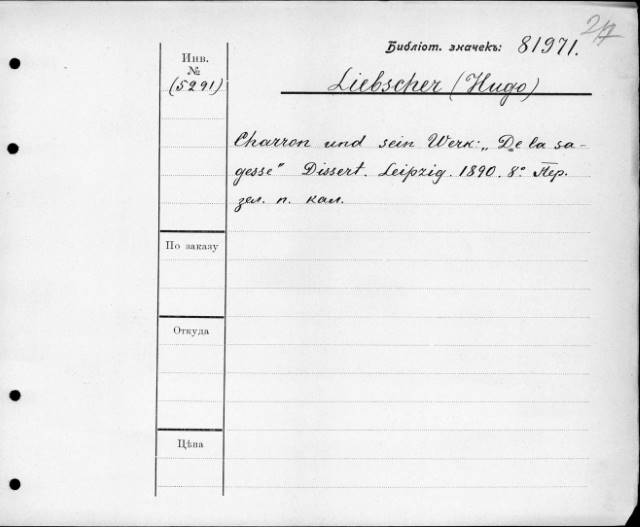 27
Библіот. значекъ: 81971.
Инв.
№
(5291)
Liebscher (Hugo)
Charron und sein Werk: „De la sa-
gesse" Dissert. Leipzig. 1890. 8° Пер.
зел. п. кал.
По заказу
Откуда
Цѣна